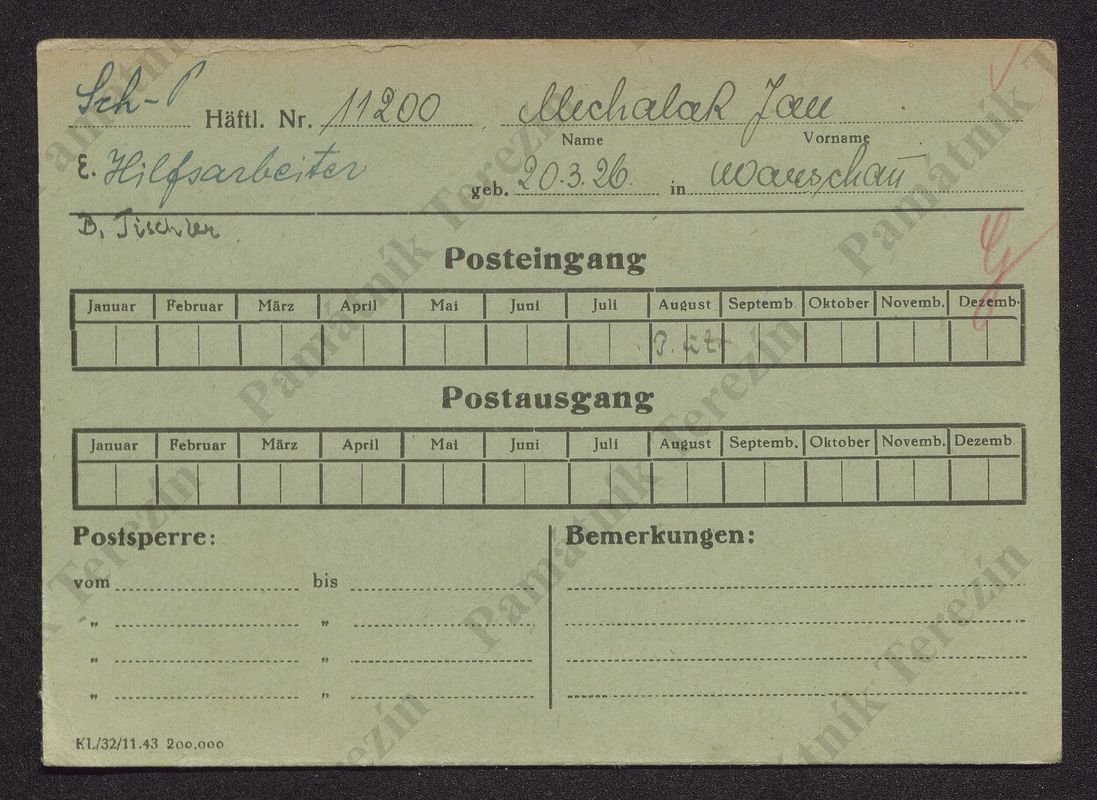 Sch-P Häftl. Nr. 11200 Mechalak Jan
Name Vorname
E. Hilfsarbeiter geb. 20.3.26. in Warschau
B. Tischler
Posteingang
Januar Februar März April Mai Juni Juli August Septemb. Oktober Novemb. Dezemb.
Postausgang
Januar Februar März April Mai Juni Juli August Septemb. Oktober Novemb. Dezemb.
Postsperre: Bemerkungen:
vom bis
„ „
„ „
„ „
KL/32/11.43 200.000
Památník Terezín